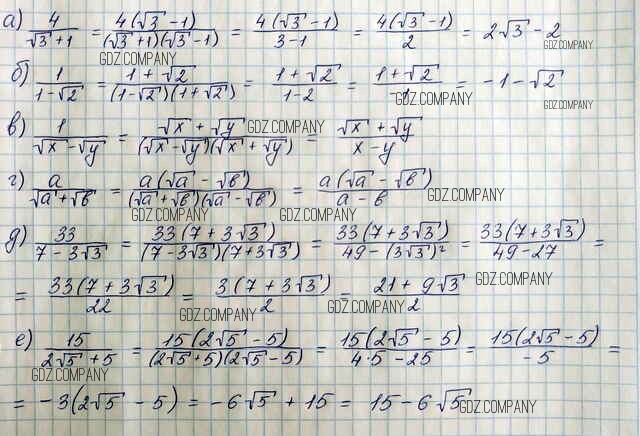 а) 4/(√3 + 1) = 4(√3 - 1)/((√3 + 1)(√3 - 1)) = 4(√3 - 1)/(3 - 1) = 4(√3 - 1)/2 = 2√3 - 2
GDZ.COMPANY GDZ.COMPANY
б) 1/(1 - √2) = (1 + √2)/((1 - √2)(1 + √2)) = (1 + √2)/(1 - 2) = (1 + √2)/(-1) = -1 - √2
GDZ.COMPANY GDZ.COMPANY
в) 1/(√x - √y) = (√x + √y)/((√x - √y)(√x + √y)) = (√x + √y)/(x - y)
GDZ.COMPANY
г) a/(√a + √в) = a(√a - √в)/((√a + √в)(√a - √в)) = a(√a - √в)/(a - в)
GDZ.COMPANY GDZ.COMPANY GDZ.COMPANY
д) 33/(7 - 3√3) = 33(7 + 3√3)/((7 - 3√3)(7 + 3√3)) = 33(7 + 3√3)/(49 - (3√3)²) = 33(7 + 3√3)/(49 - 27) =
GDZ.COMPANY
= 33(7 + 3√3)/22 = 3(7 + 3√3)/2 = (21 + 9√3)/2
GDZ.COMPANY GDZ.COMPANY
е) 15/(2√5 + 5) = 15(2√5 - 5)/((2√5 + 5)(2√5 - 5)) = 15(2√5 - 5)/(4·5 - 25) = 15(2√5 - 5)/(-5) =
GDZ.COMPANY
= -3(2√5 - 5) = -6√5 + 15 = 15 - 6√5
GDZ.COMPANY GDZ.COMPANY